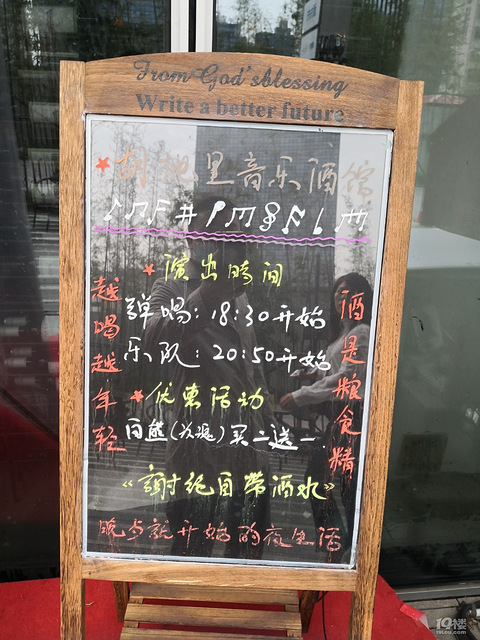 From God'sblessing
Write a better future
胡桃里音乐酒馆
演出时间
弹唱：18:30开始
乐队：20:50开始
优惠活动
(玫瑰)买二送一
《謝绝自带酒水》
晚就开始的夜生活
越喝越年轻
酒是粮食精
19楼
19lou.com